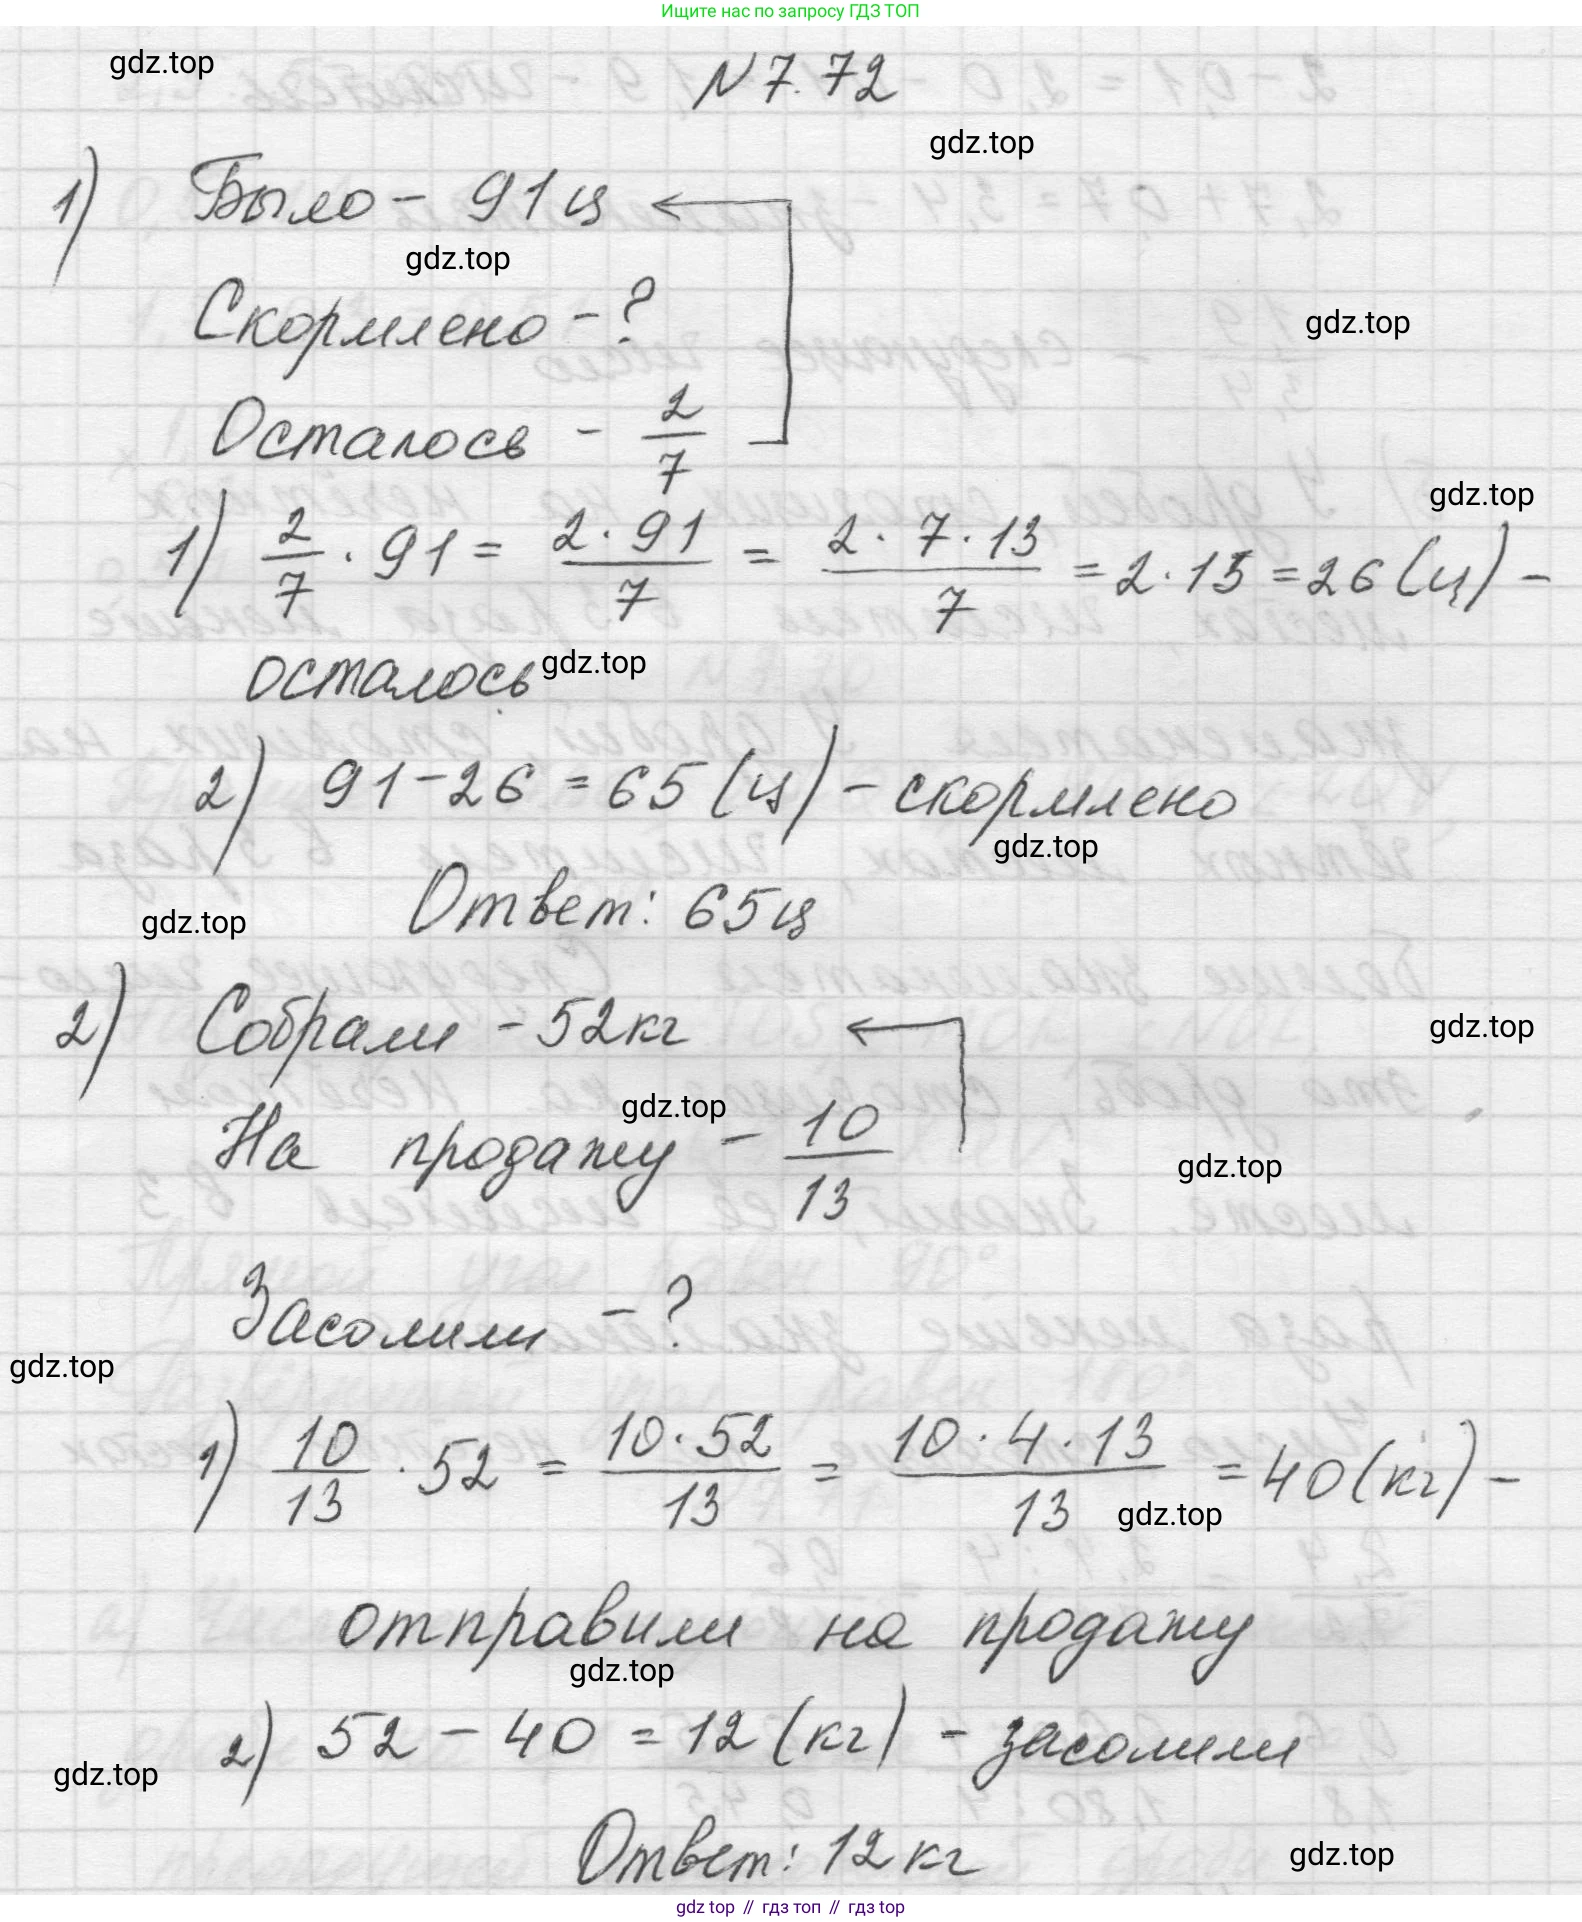 Ищите нас по запросу ГДЗ ТОП
gdz.top
№ 7.72
gdz.top
1) Было - 91 ц
gdz.top
Скормлено - ?
gdz.top
Осталось - 2/7
gdz.top
1) 2/7 · 91 = 2 · 91/7 = 2 · 7 · 13/7 = 2 · 13 = 26 (ц) -
осталось
gdz.top
2) 91 - 26 = 65 (ц) - скормлено
gdz.top
Ответ: 65 ц
gdz.top
2) Собрали - 52 кг
gdz.top
gdz.top
На продажу - 10/13
gdz.top
Засолили - ?
gdz.top
1) 10/13 · 52 = 10 · 52/13 = 10 · 4 · 13/13 = 40 (кг) -
gdz.top
отправили на продажу
gdz.top
2) 52 - 40 = 12 (кг) - засолили
gdz.top
Ответ: 12 кг
gdz.top
gdz top // гдз топ // гдз top